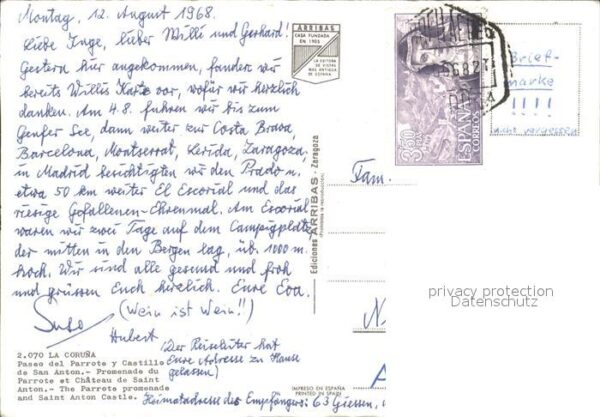 Montag, 12. August 1968.
Liebe Inge, lieber Willi und Gerhard!
Gestern hier angekommen, fanden wir
bereits Willis Karte vor, wofür wir herzlich
danken. Am 4.8. fuhren wir bis zum
Genfer See, dann weiter zur Costa Brava,
Barcelona, Montserrat, Lerida, Zaragoza,
in Madrid besichtigten wir den Prado u.
etwa 50 km weiter El Escorial und das
riesige Gefallenen-Ehrenmal. Am Escorial
waren wir zwei Tage auf dem Campigplatz,
der mitten in den Bergen lag, üb. 1000 m
hoch. Wir sind alle gesund und froh
und grüssen Euch herzlich. Eure Eva.
(Wein ist Wein!!)
Hubert
(Der Reiseleiter hat
Eure Adresse zu Hause
gelassen)
2.070 LA CORUÑA
Paseo del Parrote y Castillo
de San Anton.- Promenade du
Parrote et Château de Saint
Anton.- The Parrote promenade
and Saint Anton Castle.
Heimatadresse des Empfängers: 63 Giessen,
ARRIBAS
CASA FUNDADA
EN 1905
LA EDITORA
DE VISTAS
MAS ANTIGUA
DE ESPAÑA
Ediciones ARRIBAS - Zaragoza
IMPRESO EN ESPAÑA
PRINTED IN SPAIN
3,50 PTA
ESPAÑA
CORREOS
Brief-
marke
!!!!
nicht vergessen
Fam.
privacy protection
Datenschutz